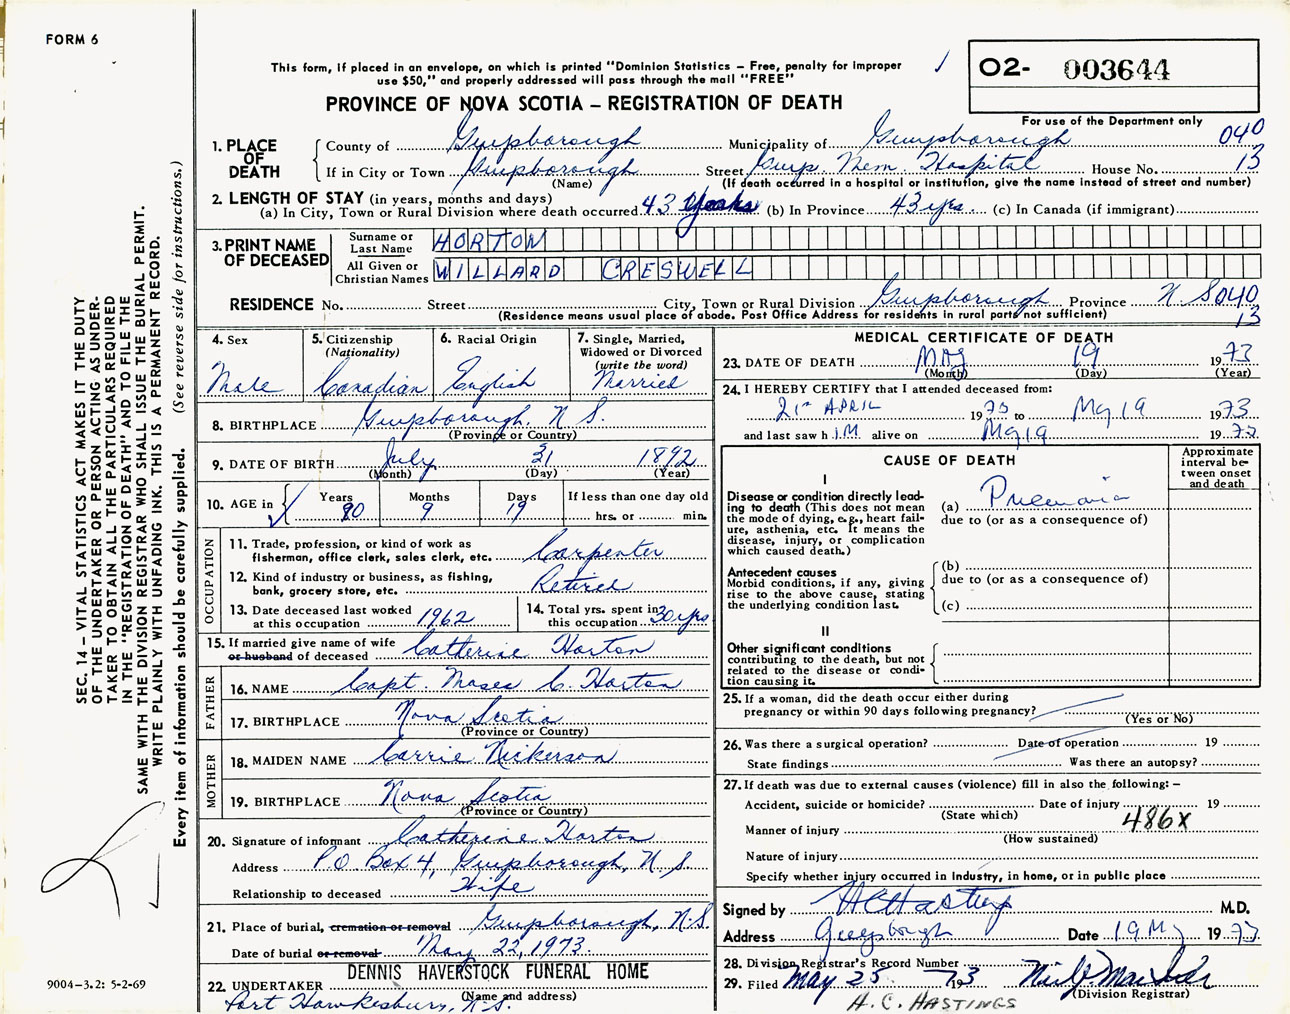 FORM 6
This form, if placed in an envelope, on which is printed "Dominion Statistics – Free, penalty for improper
use $50," and properly addressed will pass through the mail "FREE"
O2- 003644
PROVINCE OF NOVA SCOTIA – REGISTRATION OF DEATH
For use of the Department only
1. PLACE OF DEATH
County of Guysborough Municipality of Guysborough 040
If in City or Town Guysborough Street Guys. Mem. Hospital House No. 13
(Name) (If death occurred in a hospital or institution, give the name instead of street and number)
2. LENGTH OF STAY (in years, months and days)
(a) In City, Town or Rural Division where death occurred. 43 years (b) In Province 43 yrs. (c) In Canada (if immigrant)
3. PRINT NAME OF DECEASED
Surname or Last Name HORTON
All Given or Christian Names WILLARD CRESWELL
RESIDENCE No. Street City, Town or Rural Division Guysborough Province N S 040
(Residence means usual place of abode. Post Office Address for residents in rural parts not sufficient) 13
4. Sex
Male
5. Citizenship
(Nationality)
Canadian
6. Racial Origin
English
7. Single, Married,
Widowed or Divorced
(write the word)
Married
8. BIRTHPLACE Guysborough, N S.
(Province or Country)
9. DATE OF BIRTH July 31 1892
(Month) (Day) (Year)
10. AGE in Years Months Days If less than one day old
80 9 19 hrs. or min.
OCCUPATION
11. Trade, profession, or kind of work as
fisherman, office clerk, sales clerk, etc. Carpenter
12. Kind of industry or business, as fishing,
bank, grocery store, etc. Retired
13. Date deceased last worked
at this occupation 1962
14. Total yrs. spent in
this occupation 30 yrs
15. If married give name of wife
or husband of deceased Catherine Horton
FATHER
16. NAME Capt. Moses C. Horton
17. BIRTHPLACE Nova Scotia
(Province or Country)
MOTHER
18. MAIDEN NAME Carrie Nickerson
19. BIRTHPLACE Nova Scotia
(Province or Country)
20. Signature of informant Catherine Horton
Address P.O. Box 4, Guysborough, N S.
Relationship to deceased Wife
21. Place of burial, cremation or removal Guysborough, N.S.
Date of burial or removal May 22, 1973.
DENNIS HAVERSTOCK FUNERAL HOME
22. UNDERTAKER
(Name and address)
Port Hawkesbury, N.S.
MEDICAL CERTIFICATE OF DEATH
23. DATE OF DEATH May 19 1973
(Month) (Day) (Year)
24. I HEREBY CERTIFY that I attended deceased from:
21st APRIL 1973 to May 19 1973
and last saw h IM alive on May 19 1973
CAUSE OF DEATH
Approximate
interval be-
tween onset
and death
I
Disease or condition directly lead-
ing to death (This does not mean
the mode of dying, e.g., heart fail-
ure, asthenia, etc. It means the
disease, injury, or complication
which caused death.)
(a) Pneumonia
due to (or as a consequence of)
Antecedent causes
Morbid conditions, if any, giving
rise to the above cause, stating
the underlying condition last.
(b)
due to (or as a consequence of)
(c)
II
Other significant conditions
contributing to the death, but not
related to the disease or condi-
tion causing it.
25. If a woman, did the death occur either during
pregnancy or within 90 days following pregnancy?
(Yes or No)
26. Was there a surgical operation? Date of operation 19
State findings Was there an autopsy?
27. If death was due to external causes (violence) fill in also the following: –
Accident, suicide or homicide? Date of injury 19
(State which) 486X
Manner of injury
(How sustained)
Nature of injury
Specify whether injury occurred in industry, in home, or in public place
Signed by HCHastings M.D.
Address Guysborough Date 19 May 1973
28. Division Registrar's Record Number
29. Filed May 25 1973
(Division Registrar)
H. C. HASTINGS
SEC. 14 – VITAL STATISTICS ACT MAKES IT THE DUTY
OF THE UNDERTAKER OR PERSON ACTING AS UNDER-
TAKER TO OBTAIN ALL THE PARTICULARS REQUIRED
IN THE "REGISTRATION OF DEATH" AND TO FILE THE
SAME WITH THE DIVISION REGISTRAR WHO SHALL ISSUE THE BURIAL PERMIT.
WRITE PLAINLY WITH UNFADING INK. THIS IS A PERMANENT RECORD.
Every item of information should be carefully supplied. (See reverse side for instructions.)
9004-3.2: 5-2-69